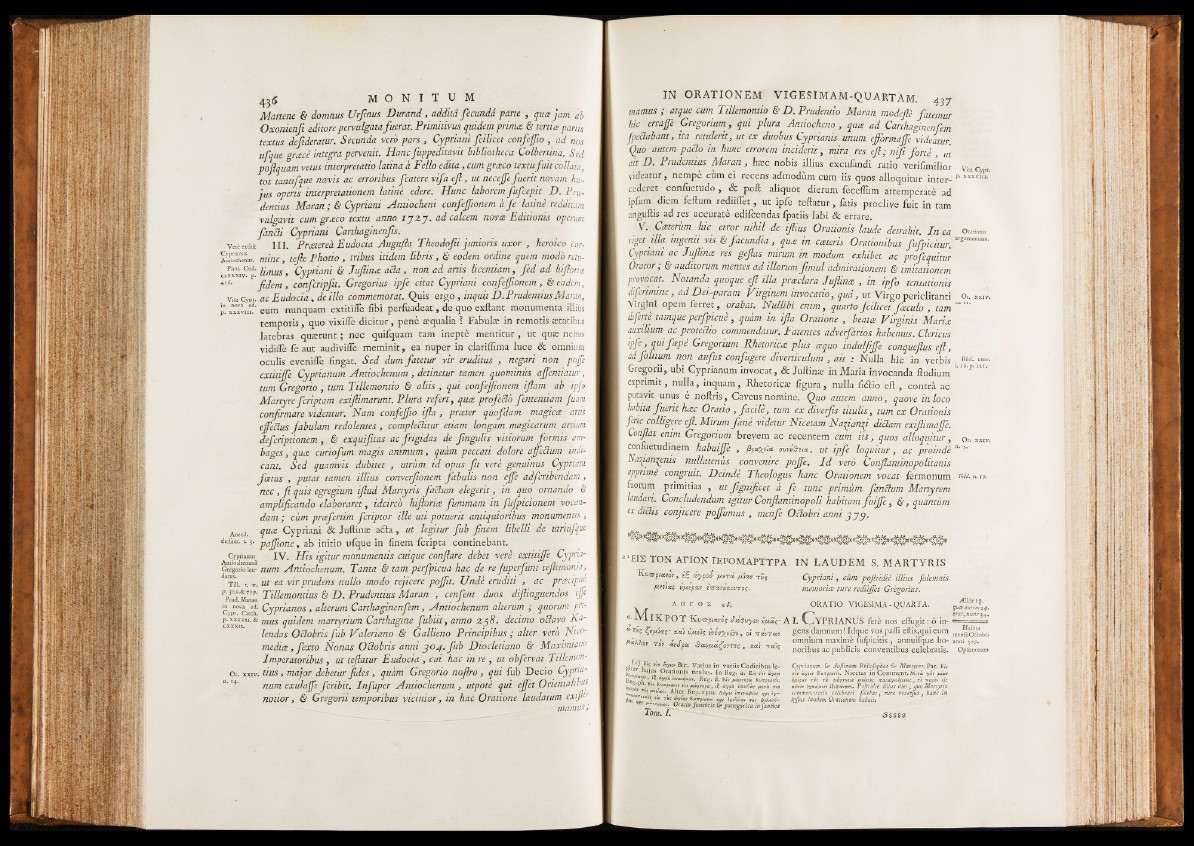 436 MONITUM
Martene & domnus Ursinus Durand, additâ secundâ parte, quæ jam ab
Oxoniensi editore pervulgata fuerat. Primitivus quidem primæ & tertiæ partis
textus desideratur. Secunda verò pars, Cypriani scilicet confessio, ad nos
usque græcè integra pervenit. Hanc suppeditavit bibliotheca Colbertina. Sed
postquam vetus interpretatio latina à Fello edita, cum græco textu fuit collata,
tot tantisque nævis ac erroribus scatere visa est, ut necesse fuerit novam hu-
jus operis interpretationem latinè edere. Hunc laborem suscepit D. Pru-
dentius Maran; & Cypriani Antiocheni confessionem à se latinè redditam
vulgavit cum græco textu anno 1727. ad calcem novæ Editionis operum
sancti Cypriani Carthaginensis.
Verè exstitit
Cyprianus
Antiochenus.
III. Præterea Eudocia Augusta Theodosii junioris uxor, heroico car-
mine, teste Photio, tribus itidem libris, & eodem ordine quem modò retu-
Phot. Cod.
CLXXXIV. p.
416.
limus, Cypriani & Justinæ acta, non ad artis licentiam, sed ad historiæ
fidem, conscripsit. Gregorius ipse citat Cypriani confessionem, & eadem,
Vita Cypr.
in nova ed.
p. XXXVIII.
ac Eudocia, de illo commemorat. Quis ergo, inquit D. Prudentius Maran,
eum nunquam extitisse sibi persuadeat, de quo exstant monumenta illius
temporis, quo vixisse dicitur, penè æqualia? Fabulæ in remotis ætatibus
latebras quærunt; nec quisquam tam ineptè mentitur, ut quæ nemo
vidisse se aut audivisse meminit, ea nuper in clarissima luce & omnium
oculis evenisse fingat. Sed dum fatetur vir eruditus, negari non posse
extitisse Cyprianum Antiochenum, detinetur tamen quominùs assentiatur,
tum Gregorio, tum Tillemontio & aliis, qui confessionem istam ab ipso
Martyre scriptam existimarunt. Plura refert, quæ profectò sententiam suam
confirmare videntur. Nam confessio ista, præter quosdam magicæ artis
effectus fabulam redolentes, complectitur etiam longam magicarum artium
descriptionem, & exquisitas ac frigidas de singulis vitiorum formis am-
bages, quæ curiosum magis animum, quàm peccati dolore affectum indi-
cant. Sed quamvis dubitet, utrùm id opus sit verè genuinus Cypriani
fœtus, putat tamen illius conversionem fabulis non esse adscribendam,
nec, si quis egregium istud Martyris factum elegerit, in quo ornando &
amplificando elaboraret, idcircò historiæ summam in suspicionem vocan-
dam; cùm præsertim scriptor ille uti potuerit antiquioribus monumentis,
Anecd.
quæ Cypriani & Justinæ acta, ut legitur sub finem libelli de utriusque
passione, ab initio usque in finem scripta continebant.
Cyprianus
Antiochenus à
Gregorio lau-
datus.
IV. His igitur monumentis cuique constare debet verè extitisse Cypria-
num Antiochenum. Tanta & tam perspicua hac de re supersunt testimonia,
ut ea vir prudens nullo modo rejicere possit. Undè eruditi, ac præcipuè
Prud. Maran
in nova ed.
Cypr. Carth.
p. XXXVIII. &
CXXXII.
Tillemontius & D. Prudentius Maran, censem duos distinguendos esse
Cyprianos, alterum Carthaginensem, Antiochenum alterum; quorum pri-
mus quidem martyrium Carthagine subiit, anno 258. decimo octavo Ka-
lendas Octobris sub Valeriano & Gallieno Principibus; alter verò Nico-
mediæ, sexto Nonas Octobris anno 304. sub Diocletiano & Maximiano
Imperatoribus, ut testatur Eudocia, cui hac in re, ut observat Tillemon-
Or. XXIV.
n. 14.
tius, major debetur fides, quàm Gregorio nostro, qui sub Decio Cypria-
num exulasse scribit. Insuper Antiochenum, utpotè qui esset Orientalibus
notior, & Gregorii temporibus vicinior, in hac Oratione laudatum existi-
mamus;
IN ORATIONEM VIGESIMAM-QUARTAM. 437
mamus; atque cum Tillemontio & D. Prudentio Maran modestè fatemur
hic errasse Gregorium, qui plura Antiocheno, quæ ad Carthaginensem
spectabant, ita retulerit, ut ex duobus Cyprianis unum efformasse videatur.
Quo autem pacto in hunc errorem inciderit, mira res est; nisi fortè, ut
ait D. Prudentius Maran, hæc nobis illius excusandi ratio verisimilior
Vita Cypr.
p. XXXVIII.
videatur, nempè cùm ei recens admodùm cum iis quos alloquitur inter-
cederet consuetudo, & post aliquot dierum secessum attemperatè ad
ipsum diem festum rediisset, ut ipse testatur, satis proclive fuit in tam
angustis ad res accuratè ediscendas spatiis labi & errare.
V. Cæterùm hic error nihil de istius Orationis laude detrahit. In ea
Orationis
argumentum.
viget illa ingenii vis & facundia, quæ in cæteris Orationibus suspicitur.
Cypriani ac Justinæ res gestas mirum in modum exhibet ac prosequitur
Orator; & auditorum mentes ad illorum simul admirationem & imitationem
provocat. Notanda quoque est illa præclara Justinæ, in ipso tentationis
discrimine, ad Dei-param Virginem invocatio, quâ, ut Virgo periclitanti
Or. XXIV.
Virgini opem ferret, orabat. Nullibi enim, quarto scilicet sæculo, tam
disertè tamque perspicuè, quàm in ista Oratione, beatæ Virginis Mariæ
auxilium ac protectio commendatur. Fatentes adversarios habemus. Clericus
ipse, qui sæpè Gregorium Rhetoricæ plus æquo indulsisse conquestus est,
ad solitum non ausus confugere diverticulum, ait: Nulla hic in verbis
Gregorii, ubi Cyprianum invocat, & Justinæ in Maria invocanda studium
exprimit, nulla, inquam, Rhetoricæ figura, nulla fictio est, contrà ac
putavit unus è nostris, Caveus nomine. Quo autem anno, quove in loco
habita fuerit hæc Oratio, facilè, tum ex diversis titulis, tum ex Orationis
serie colligere est. Mirum sanè videtur Nicetam Nazianzi dictam existimasse.
Constat enim Gregorium brevem ac recentem cum iis, quos alloquitur,
Or. XXIV.
consuetudinem habuisse, βραχεῖα συνήθεια, ut ipse loquitur, ac proindè
Nazianzenis nullatenùs convenire posse. Id verò Constantinopolitanis
apprimè congruit. Deindè Theologus hanc Orationem vocat sermonum
Ibid. n. 19.
suorum primitias, ut significet à se tunc primùm sanctum Martyrem
laudari. Concludendum igitur Constantinopoli habitam fuisse, &, quantùm
ex dictis conjicere possumus, mense Octobri anni 379.
ᵃ ΕΙΣ ΤΟΝ ΑΓΙΟΝ ΙΕΡΟΜΑΡΤΥΡΑ
Κυπριανὸν, ἐξ ἀγροῦ μετὰ μίαν τῆς
μνείας ἡμέραν ἐπανήκοντος.
ΛΟΓΟΣ κδ.
α. ΜΙΚΡΟΥ Κυπριανὸς διέφυγεν ἡμᾶς·
ὢ τῆς ζημίας· καὶ ὑμεῖς ἠνέσχεσθε, οἱ πάντων
μᾶλλον τὸν ἄνδρα θαυμάζοντες, καὶ ταῖς
IN LAUDEM S. MARTYRIS
Cypriani, cùm postridiè illius solemnis
memoriæ rure rediisset Gregorius.
ORATIO VIGESIMA-QUARTA.
I. CYPRIANUS ferè nos effugit: ô in-
gens damnum! Idque vos passi estis, qui eum
omnium maximè suspicitis, annuisque ho-
noribus ac publicis conventibus celebratis.
Habita
mense Octobri
anni 379.
Tom. I.
Sssss